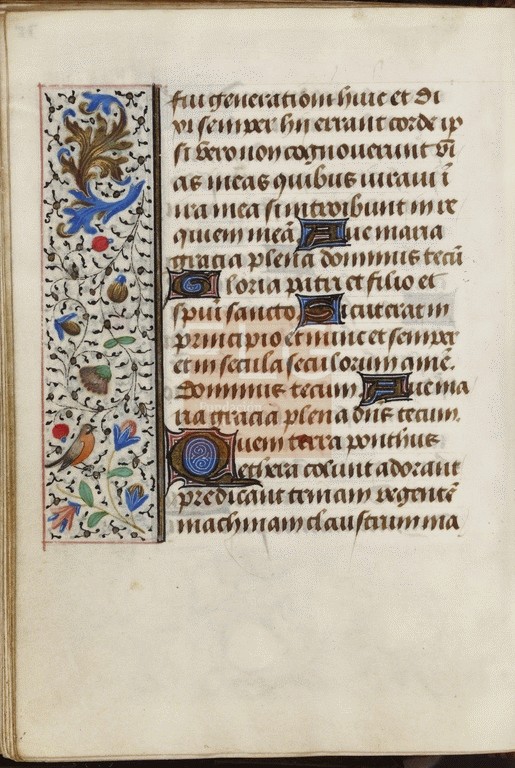 fui generationi huic et di
xi semper hii errant corde ip
si vero non cognoverunt vi
as meas quibus iuravi ī
ira mea si introibunt in re
quiem meā Ave maria
gracia plena dominus tecū
Gloria patri et filio et
spūi sancto Sicut erat in
principio et nunc et semper
et in secula seculorum amē.
Dominus tecum Ave ma
ria gracia plena dn̄s tecum.
Quem terra ponthus
ethera colunt adorant
predicāt trinam regentē
machinam claustrum ma